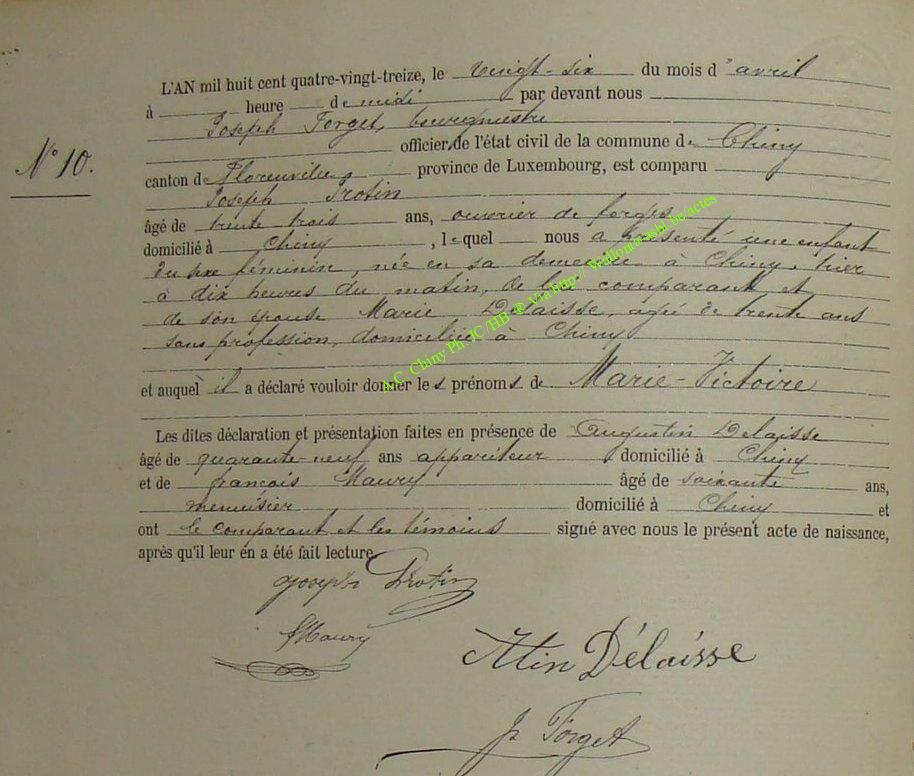 L'AN mil huit cent quatre-vingt-treize, le vingt-six du mois d'avril
à heure de midi par devant nous
Joseph Forget, bourgmestre
officier de l'état civil de la commune de Chiny
N° 10.
canton de Florenville, province de Luxembourg, est comparu
Joseph Protin
âgé de trente trois ans, ouvrier de forges
domicilié à Chiny, lequel nous a présenté une enfant
du sexe féminin, née en sa demeure à Chiny, hier
à dix heures du matin, de lui comparant et
de son épouse Marie Delaisse, agée de trente ans
sans profession, domiciliée à Chiny
et auquel il a déclaré vouloir donner les prénoms de Marie-Victoire
Les dites déclaration et présentation faites en présence de Augustin Delaisse
âgé de quarante-neuf ans appariteur domicilié à Chiny
et de francois Maury âgé de soixante ans,
menuisier domicilié à Chiny et
ont le comparant et les témoins signé avec nous le présent acte de naissance,
après qu'il leur en a été fait lecture.
Joseph Protin
fMaury
Atin Délaisse
J. Forget
A.C. Chiny Ph JC/HB @ Via http://